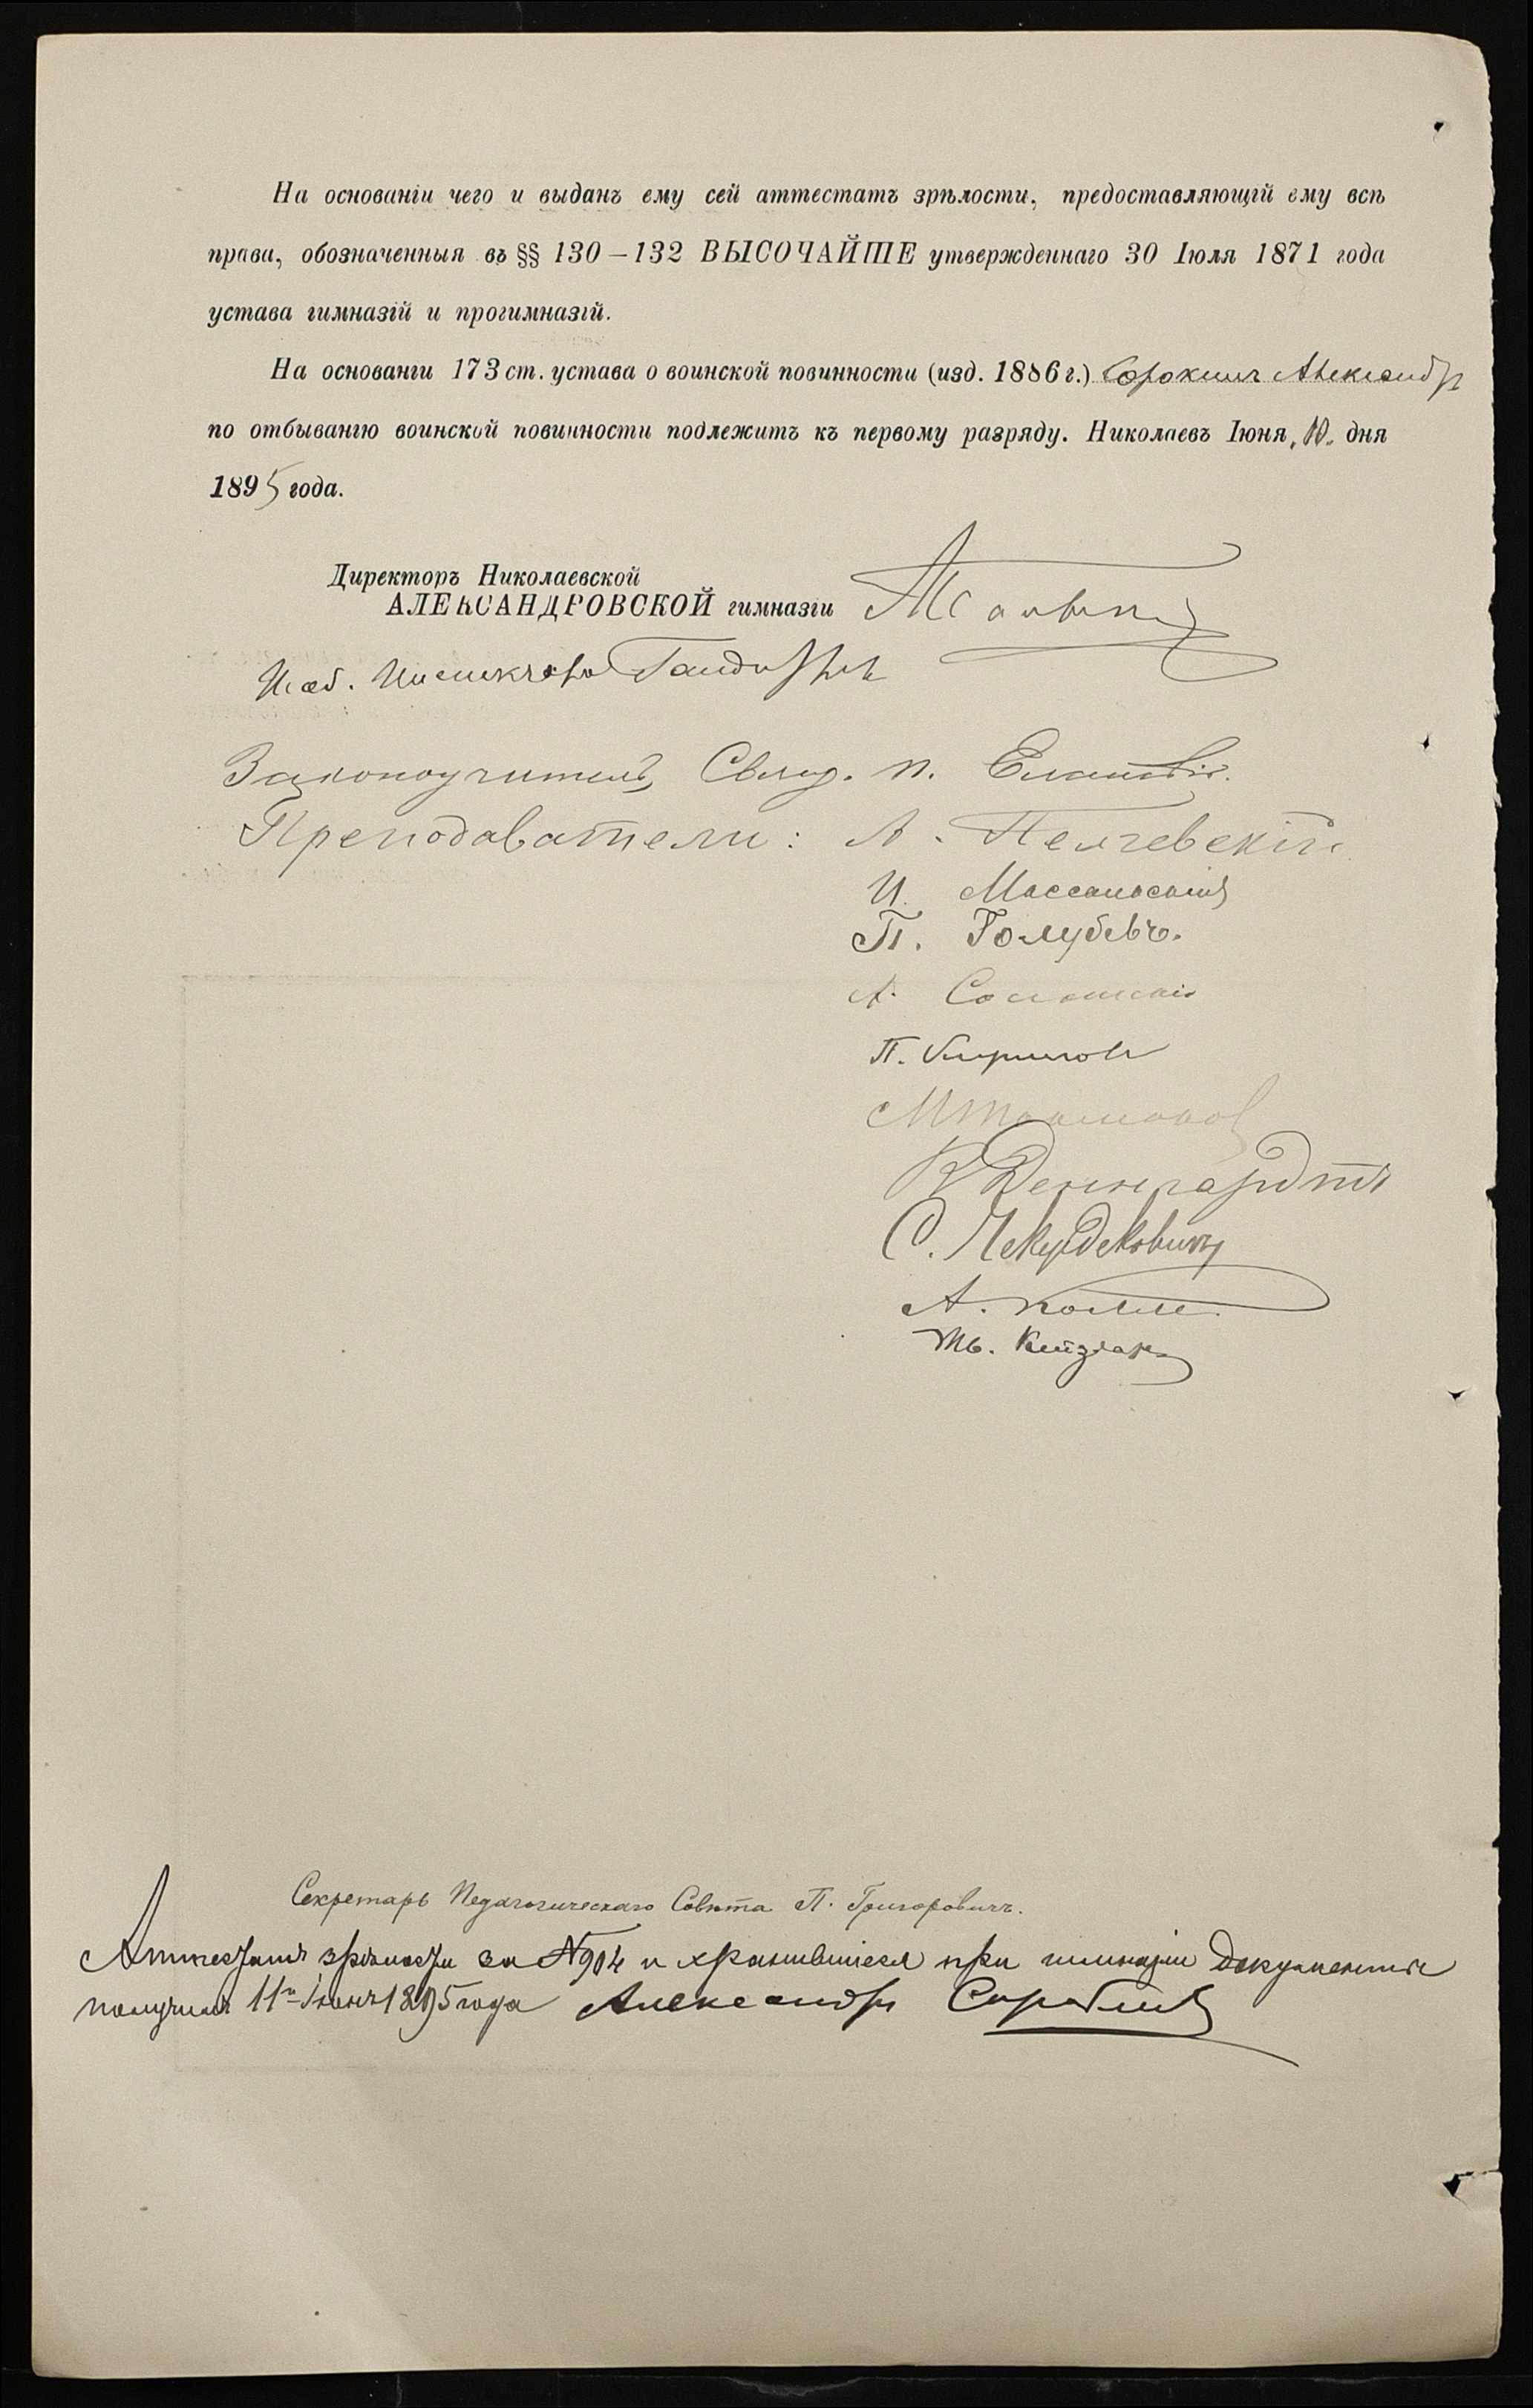 На основаніи чего и выданъ ему сей аттестатъ зрѣлости, предоставляющій ему всѣ
права, обозначенныя въ §§ 130–132 ВЫСОЧАЙШЕ утвержденнаго 30 Іюля 1871 года
устава гимназій и прогимназій.
На основаніи 173 ст. устава о воинской повинности (изд. 1886 г.) Сорокинъ Александръ
по отбыванію воинской повинности подлежитъ къ первому разряду. Николаевъ Іюня „10„ дня
1895 года.
Директоръ Николаевской
АЛЕКСАНДРОВСКОЙ гимназіи
Инспектора
Законоучитель, Свящ. П. Еланскій.
Преподаватели: А. Пелчевскій
И.
П. Голубевъ.
А.
П. Кирилловъ
В. Деннгардтъ
С.
А. Колли.
Секретарь Педагогическаго Совѣта П. Григоровичъ.
Аттестатъ зрѣлости за № 904 и хранившіеся при гимназіи документы
получилъ 11го Іюня 1895 года Александръ Сорокинъ